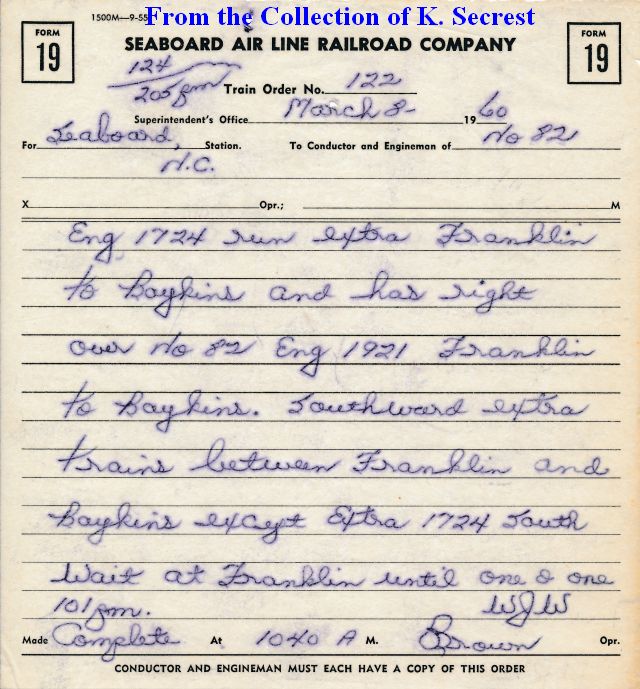 From the Collection of K. Secrest
1500M—9-55
FORM 19
SEABOARD AIR LINE RAILROAD COMPANY
FORM 19
124
205 pm
Train Order No. 122
Superintendent's Office March 8- 1960
For Seaboard, Station. To Conductor and Engineman of No 82
N.C.
X Opr.; M
Eng 1724 run extra Franklin
to Boykins and has right
over No 82 Eng 1921 Franklin
to Boykins. Southward extra
trains between Franklin and
Boykins except Extra 1724 South
Wait at Franklin until one 0 one
101 pm. WJW
Made Complete At 1040 A M. Brown Opr.
CONDUCTOR AND ENGINEMAN MUST EACH HAVE A COPY OF THIS ORDER